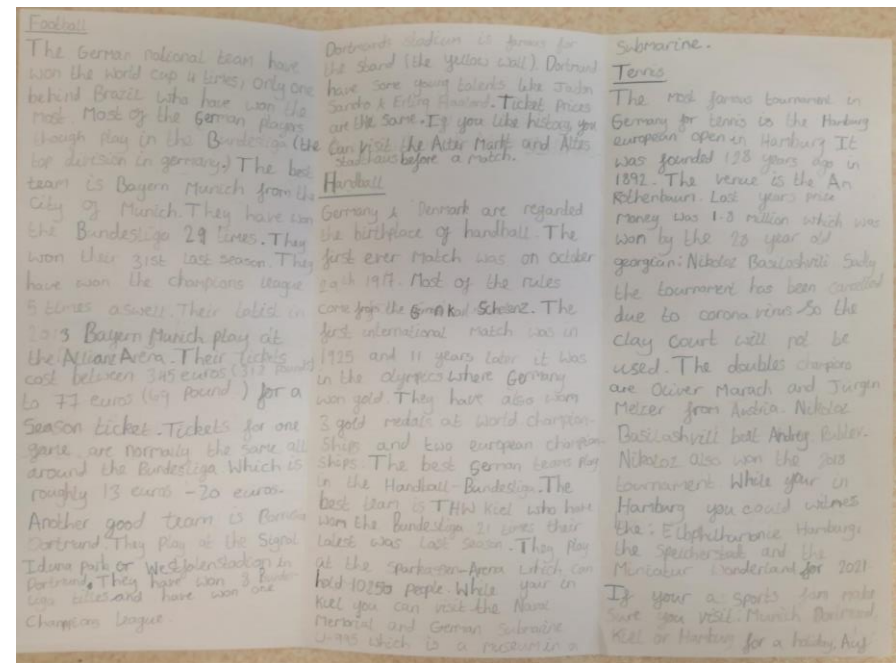 Football
The German national team have
won the world cup 4 times, only one
behind Brazil who have won the
most. Most of the German players
though play in the Bundesliga (the
top division in germany.) The best
team is Bayern Munich from the
City of Munich. They have won
the Bundesliga 29 times. They
won their 31st last season. They
have won the champions league
5 times aswell. Their latest in
2013 Bayern Munich play at
the Allianz Arena. Their tickets
cost between 345 euros (312 pounds)
to 77 euros (69 pound) for a
Season ticket. Tickets for one
game are normally the same all
around the Bundesliga which is
roughly 13 euros - 20 euros.
Another good team is
Dortmund. They play at the Signal
Iduna park or Westfalenstadion in
Dortmund. They have won 8
titles and have won one
Champions League.
Dortmunds stadium is famous for
the stand (the yellow wall). Dortmund
have some young talents like Jadon
Sancho & Erling Haaland. Ticket Prices
are the same. If you like history you
can visit the Alter Markt and Altes
Stadthaus before a match.
Handball
Germany & Denmark are regarded
the birthplace of handball. The
first ever match was on october
1917. Most of the rules
come from the Schelenz. The
first international match was in
1925 and 11 years later it was
in the olympics where Germany
won gold. They have also won
3 gold medals at world champion-
ships and two european champion-
ships. The best German teams play
in the Handball-Bundesliga. The
best team is THW Kiel who have
won the Bundesliga 21 times their
latest was last season. They play
at the Sparkassen-Arena which can
hold 10250 people. While your in
Kiel you can visit the Naval
Memorial and German Submarine
U-995 which is a museum in a
Submarine.
Tennis
The most famous tournament in
Germany for tennis is the Hamburg
european open in Hamburg It
was founded 128 years ago in
1892. The venue is the Am
Rothenbaum. Last years prize
money was 1.8 million which was
won by the 28 year old
georgian: Nikoloz Basilashvili Sadly
the tournament has been cancelled
due to corona virus. So the
clay court will not be
used. The doubles champions
are Oliver Marach and Jurgen
Melzer from Austria. Nikoloz
Basilashvili beat Andrey Rublev.
Nikoloz also won the 2018
tournament While your in
Hamburg you could witness
the: Elbphilharmonie Hamburg,
the Speicherstadt and the
Miniatur Wonderland for 2021
If your a sports fan make
sure you visit: Munich Dortmund,
Kiel or Hamburg for a holiday. Auf